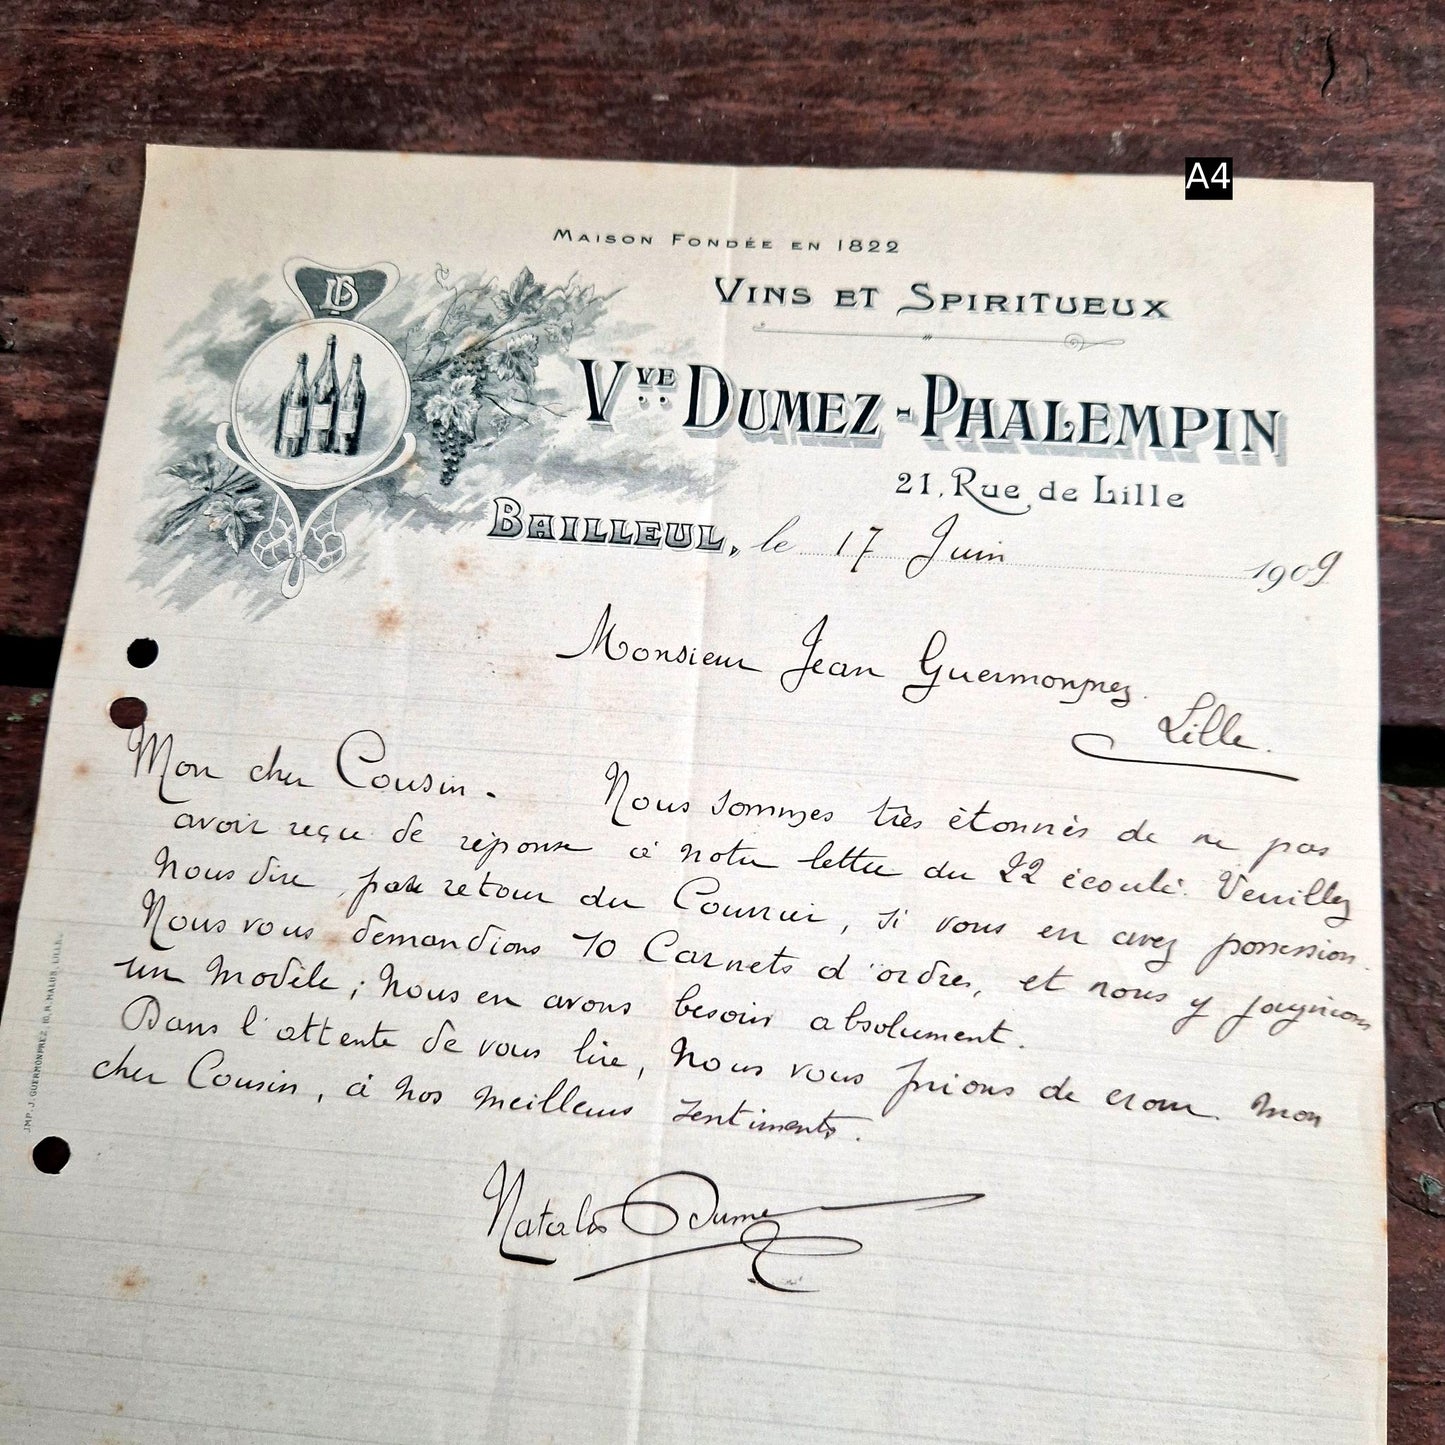 A4
MAISON FONDÉE EN 1822
VINS ET SPIRITUEUX
VVE DUMEZ-PHALEMPIN
21, Rue de Lille
BAILLEUL, le 17 Juin 1909
Monsieur Jean Guermonprez.
Lille.
Mon cher Cousin. Nous sommes très étonnés de ne pas
avoir reçu de réponse à notre lettre du 22 écoulé. Veuillez
nous dire par retour du Courrier, si vous en avez possession.
Nous vous demandions 10 Carnets d'ordres, et nous y joignions
un modèle ; nous en avons besoin absolument.
Dans l'attente de vous lire, nous vous prions de croire mon
cher Cousin, à nos meilleurs sentiments.
Dumez
IMP. J. GUERMONPREZ, 10, R. MALUS, LILLE.
DP